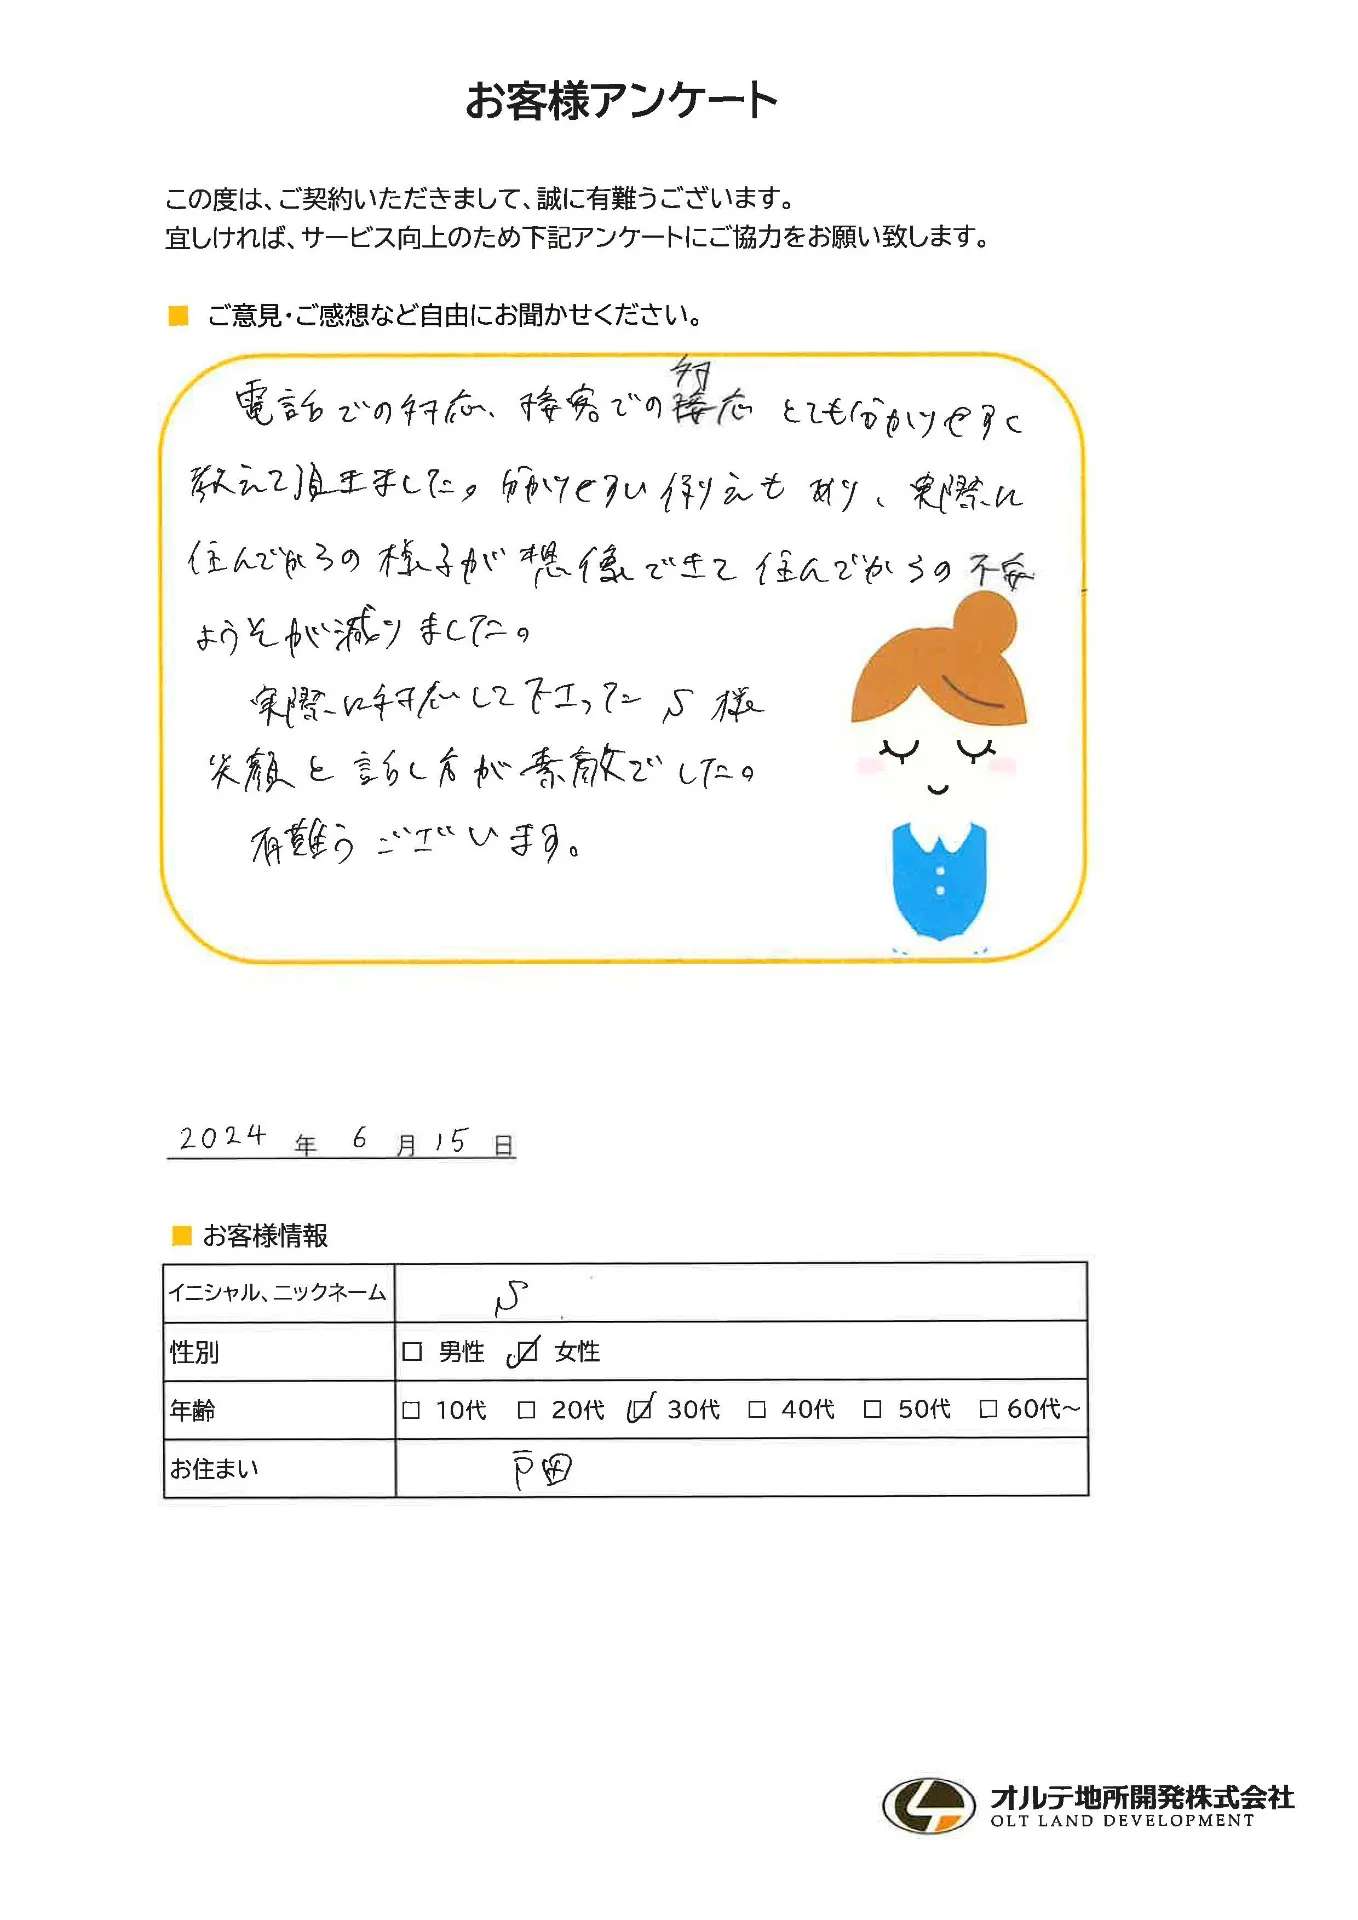 お客様アンケート
この度は、ご契約いただきまして、誠に有難うございます。
宜しければ、サービス向上のため下記アンケートにご協力をお願い致します。
■ ご意見・ご感想など自由にお聞かせください。
電話での対応、接客での対応 とても分かりやすく
教えて頂きました。分かりやすい例えもあり、実際に
住んでからの様子が想像できて住んでからの不安
ようそが減りました。
実際に対応して下さった S 様
笑顔と話し方が素敵でした。
有難うございます。
2024 年 6 月 15 日
■ お客様情報
イニシャル、ニックネーム S
性別 □ 男性 ☑ 女性
年齢 □ 10代 □ 20代 ☑ 30代 □ 40代 □ 50代 □ 60代～
お住まい 戸田
オルテ地所開発株式会社
OLT LAND DEVELOPMENT